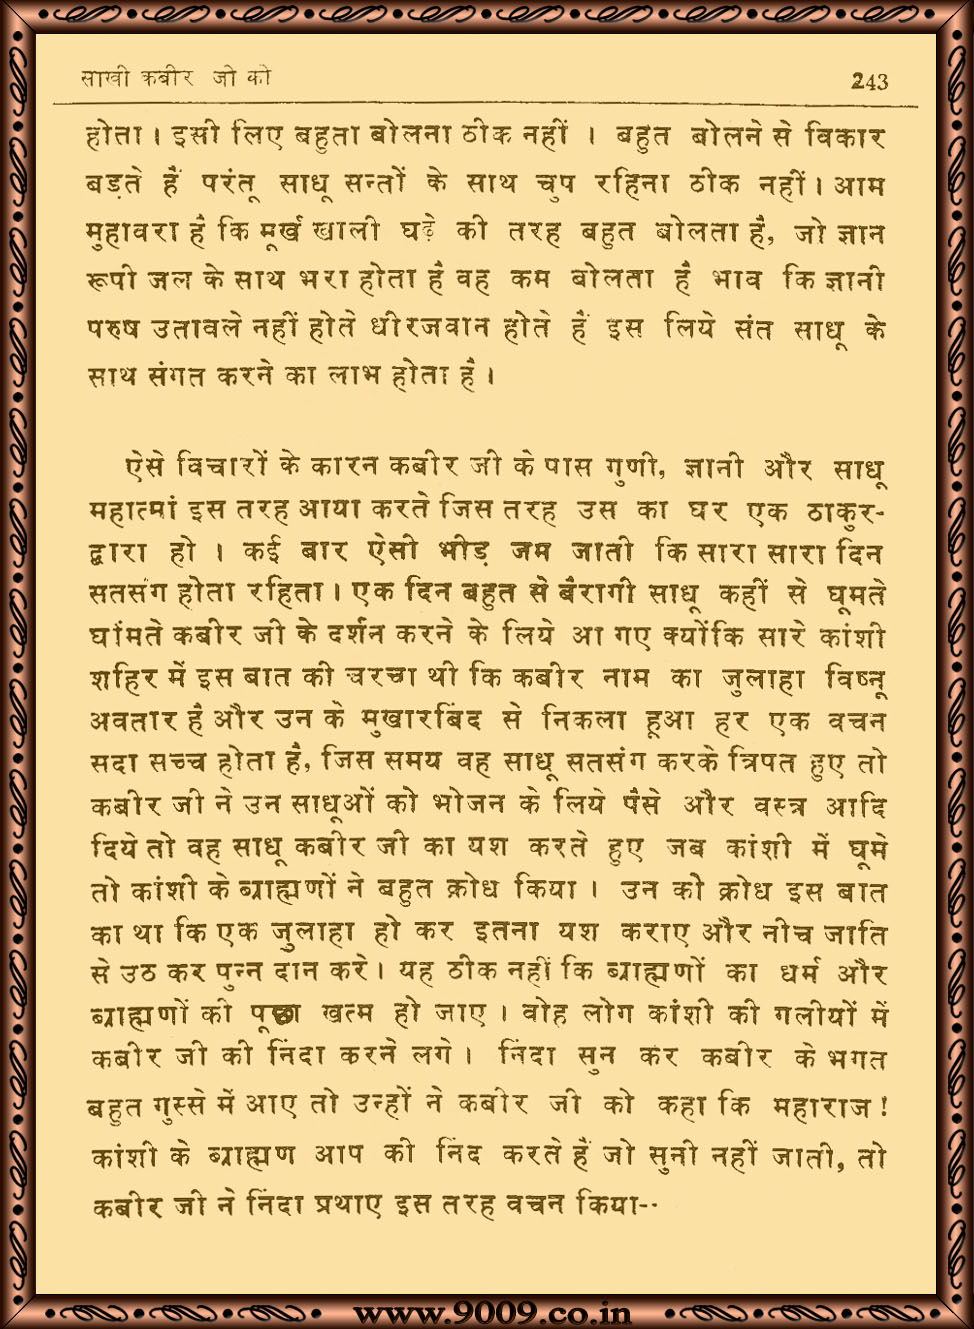 साखी कबीर जी की 243
होता । इसी लिए बहुता बोलना ठीक नहीं । बहुत बोलने से विकार
बड़ते हैं परंतू साधू सन्तों के साथ चुप रहिना ठीक नहीं । आम
मुहावरा है कि मूर्ख खाली घड़े की तरह बहुत बोलता है, जो ज्ञान
रूपी जल के साथ भरा होता है वह कम बोलता है भाव कि ज्ञानी
परुष उतावले नहीं होते धीरजवान होते हैं इस लिये संत साधू के
साथ संगत करने का लाभ होता है ।
ऐसे विचारों के कारन कबीर जी के पास गुणी, ज्ञानी और साधू
महात्मां इस तरह आया करते जिस तरह उस का घर एक ठाकुर-
द्वारा हो । कई बार ऐसी भीड़ जम जाती कि सारा सारा दिन
सतसंग होता रहिता । एक दिन बहुत से बैरागी साधू कहीं से घूमते
घांमते कबीर जी के दर्शन करने के लिये आ गए क्योंकि सारे कांशी
शहिर में इस बात की चरचा थी कि कबीर नाम का जुलाहा विष्नू
अवतार है और उन के मुखारबिंद से निकला हूआ हर एक वचन
सदा सच्च होता है, जिस समय वह साधू सतसंग करके त्रिपत हुए तो
कबीर जी ने उन साधूओं को भोजन के लिये पैसे और वस्त्र आदि
दिये तो वह साधू कबीर जी का यश करते हुए जब कांशी में घूमे
तो कांशी के ब्राह्मणों ने बहुत क्रोध किया । उन को क्रोध इस बात
का था कि एक जुलाहा हो कर इतना यश कराए और नीच जाति
से उठ कर पुन्न दान करे । यह ठीक नहीं कि ब्राह्मणों का धर्म और
ब्राह्मणों की पूछा खत्म हो जाए । वोह लोग कांशी की गलीयों में
कबीर जी की निंदा करने लगे । निंदा सुन कर कबीर के भगत
बहुत गुस्से में आए तो उन्हों ने कबीर जी को कहा कि महाराज !
कांशी के ब्राह्मण आप की निंद करते हैं जो सुनी नहीं जाती, तो
कबीर जी ने निंदा प्रथाए इस तरह वचन किया--
www.9009.co.in